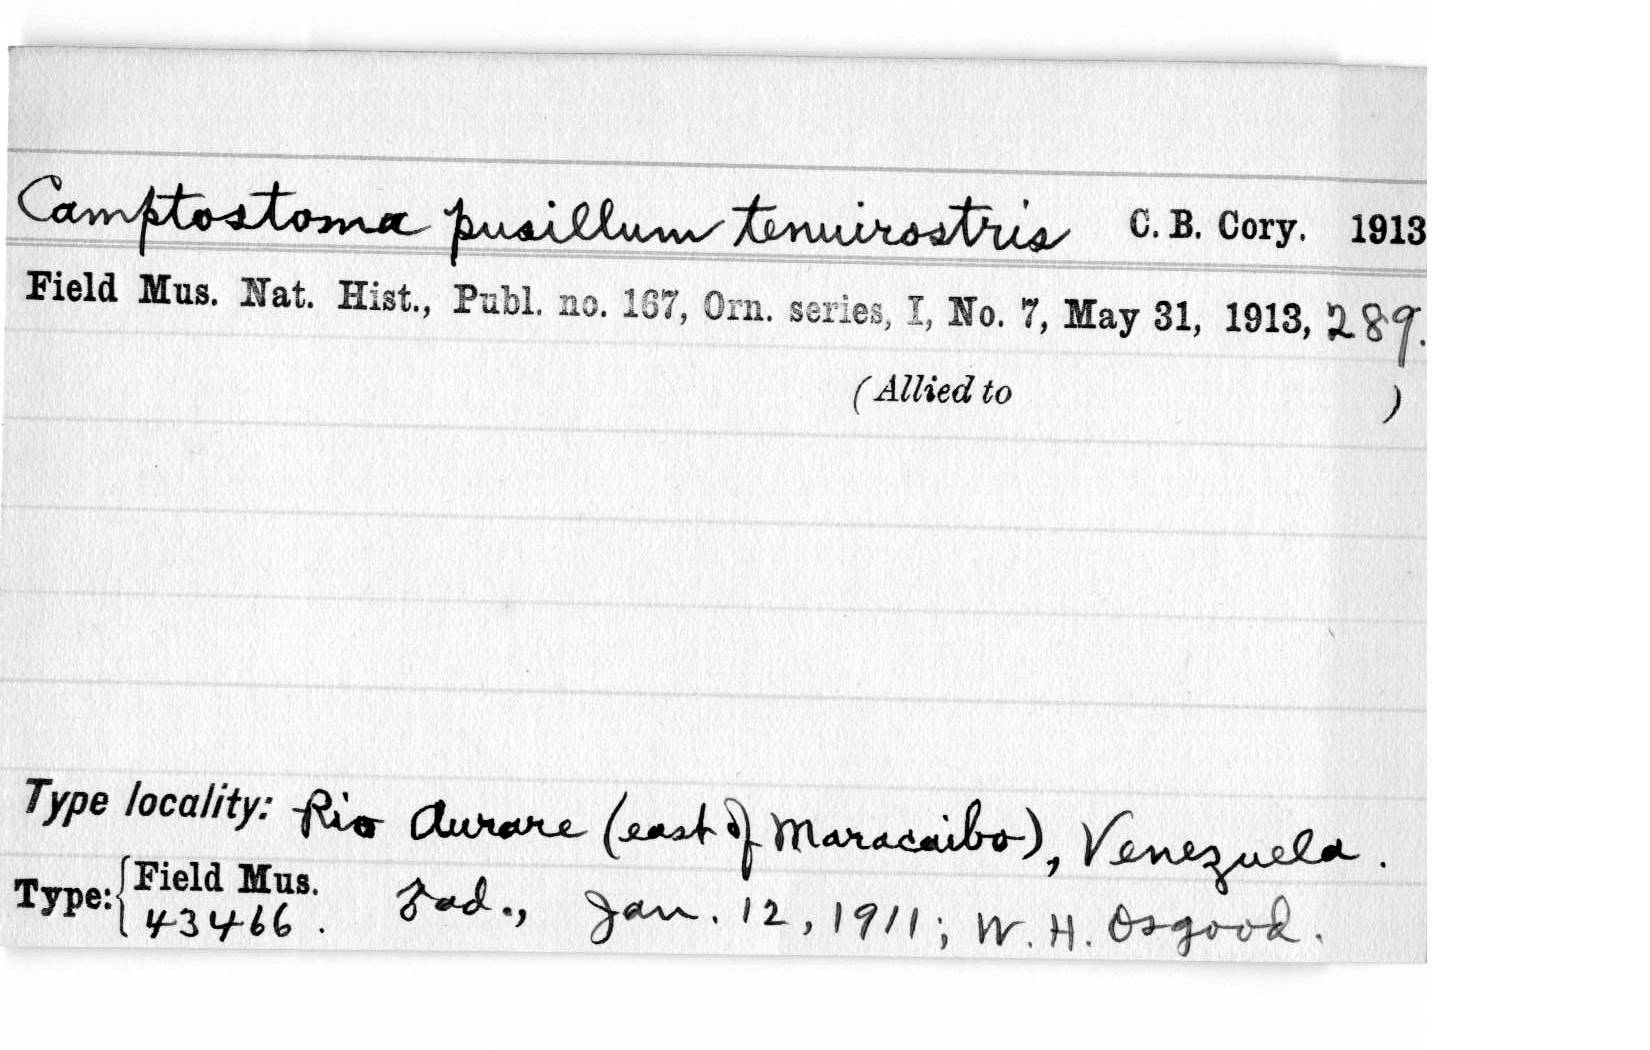 Camptostoma pusillum tenuirostris C. B. Cory. 1913
Field Mus. Nat. Hist., Publ. no. 167, Orn. series, I, No. 7, May 31, 1913, 289.
(Allied to )
Type locality: Rio Aurare (east of Maracaibo), Venezuela.
Type: { Field Mus. 43466. ad., Jan. 12, 1911; W. H. Osgood.